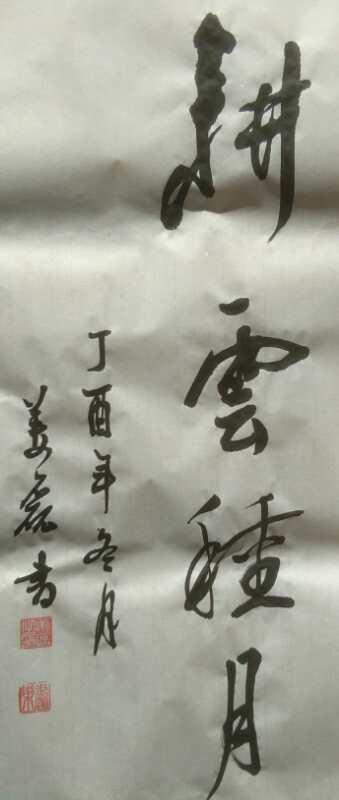 耕雲種月
丁酉年冬月
姜磊书